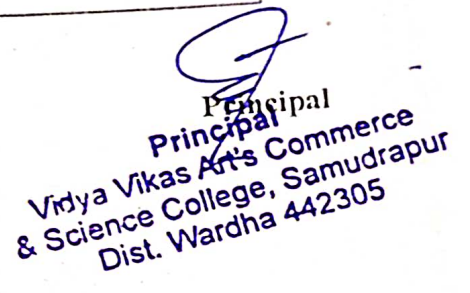 Principal
Principal
Vidya Vikas Art's Commerce
& Science College, Samudrapur
Dist. Wardha 442305